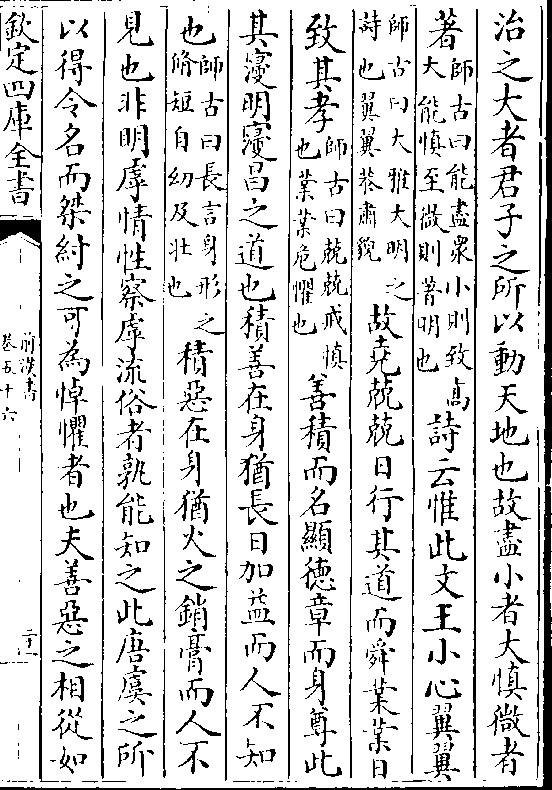 治之大者君子之所以動天地也故盡小者大慎微者
著師古曰能盡衆小則致高大能慎至微則著明也詩云惟此文王小心翼翼
師古曰大雅大明之詩也翼翼恭肅貌故堯兢兢日行其道而舜業業日
致其孝師古曰兢兢戒慎也業業危懼也善積而名顯德章而身尊此
其寖明寖昌之道也積善在身猶長日加益而人不知
也師古曰長言身形之脩短自幼及壯也積惡在身猶火之銷膏而人不
見也非明虖情性察虖流俗者孰能知之此唐虞之所
以得令名而桀紂之可為悼懼者也夫善惡之相從如
欽定四庫全書
前漢書
卷五十六
二十一